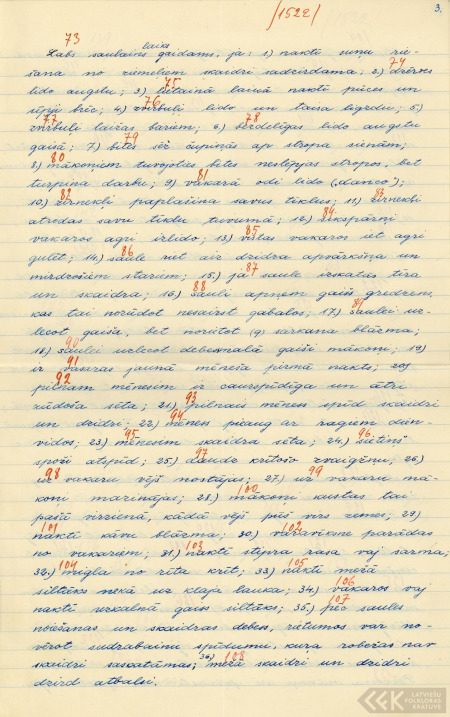 /1522/
3.
73
laiks
Labs saulains gaidams, ja: 1) naktī suņu rie-
74
šana no ziemeļiem skaidri sadzirdama; 2) dzērves
75
lido augstu; 3) lietainā laikā naktī pūces un
76
ūpji brēc; 4) zvirbuļi lido un taisa ligzdu; 5)
77 78
zvirbuļi laižas bariem; 6) bezdelīgas lido augstu
79
gaisā; 7) bites sēž čupiņās ap stropa sienām;
80
8) mākoņiem tuvojoties bites neslēpjas stropos, bet
81
turpina darbu; 9) vakarā odi lido ("danco");
82 83
10.) zirnekļi paplašina savus tīklus; 11.) zirnekļi
84
atrodas savu tīklu tuvumā; 12.) sikspārņi
85
vakaros agri izlido; 13.) vistas vakaros iet agri
86
gulēt; 14.) saule riet aiz dzidra apvārkšņa un
87
mirdzošiem stariem; 15.) ja saule izskatas tīra
88
un skaidra; 16.) sauli apņem gaišs gredzens,
89
kas tai norūdot nesairst gabalos; 17.) saulei uz-
lecot gaiša, bet norietot (9) sarkana blāzma;
90
18.) saulei uzlecot debesmalā gaiši mākoņi; 19)
91
ir vasaras jaunā mēneša pirmā nakts; 20)
92
pilnam mēnesim ir caurspīdīga un ātri
93
zūdoša sēta; 21.) pilnais mēness spīd skaidri
94
un dzidri; 22.) mēness pieaug ar ragiem dien-
95 96
vidos; 23.) mēnesim skaidra sēta; 24.) sietiņš
97
spoži atspīd; 25.) daudz krītošo zvaigžņu; 26.)
98 99
uz vakaru vējš nostājas; 27.) uz vakaru mā-
100
koņi mazinājas; 28.) mākoņi kustas tai
pašā virzienā, kādā vējš pūš virs zemes; 29)
101 102
naktī kāvu blāzma; 30.) varavīksne parādas
103
no vakariem; 31.) naktī stipra rasa vaj sarma;
104 105
32.) migla no rīta krīt; 33.) naktī mežā
106
siltāks nekā uz klaja lauka; 34.) vakaros vaj
107
naktī uzkalnā gaiss siltāks; 35.) pēc saules
noiešanas un skaidras debess, rietumos var no-
vērot sudrabainu spīdumu, kura robežas nav
108
skaidri saskatāmas; 36.) mežā skaidri un dzidri
dzird atbalsi.
LATVIEŠU
FOLKLORAS
KRĀTUVE